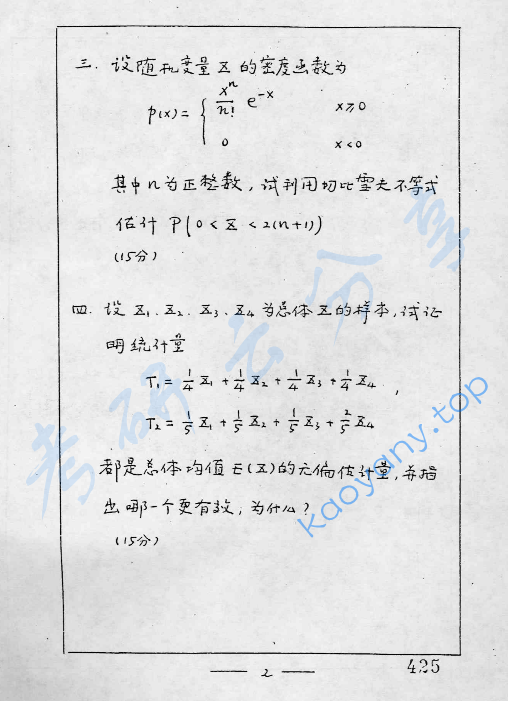 三. 设随机变量 X 的密度函数为
p(x) = { x^n/n! e^{-x}  x≥0
0  x<0
其中 n 为正整数, 试利用切比雪夫不等式
估计 P(0 < X < 2(n+1))
(15分)
四. 设 X₁、X₂、X₃、X₄ 为总体 X 的样本, 试证
明统计量
T₁ = 1/4 X₁ + 1/4 X₂ + 1/4 X₃ + 1/4 X₄ ,
T₂ = 1/5 X₁ + 1/5 X₂ + 1/5 X₃ + 2/5 X₄
都是总体均值 E(X) 的无偏估计量, 并指
出哪一个更有效, 为什么?
(15分)
— 2 —
425
考研云分享
kaoyany.top